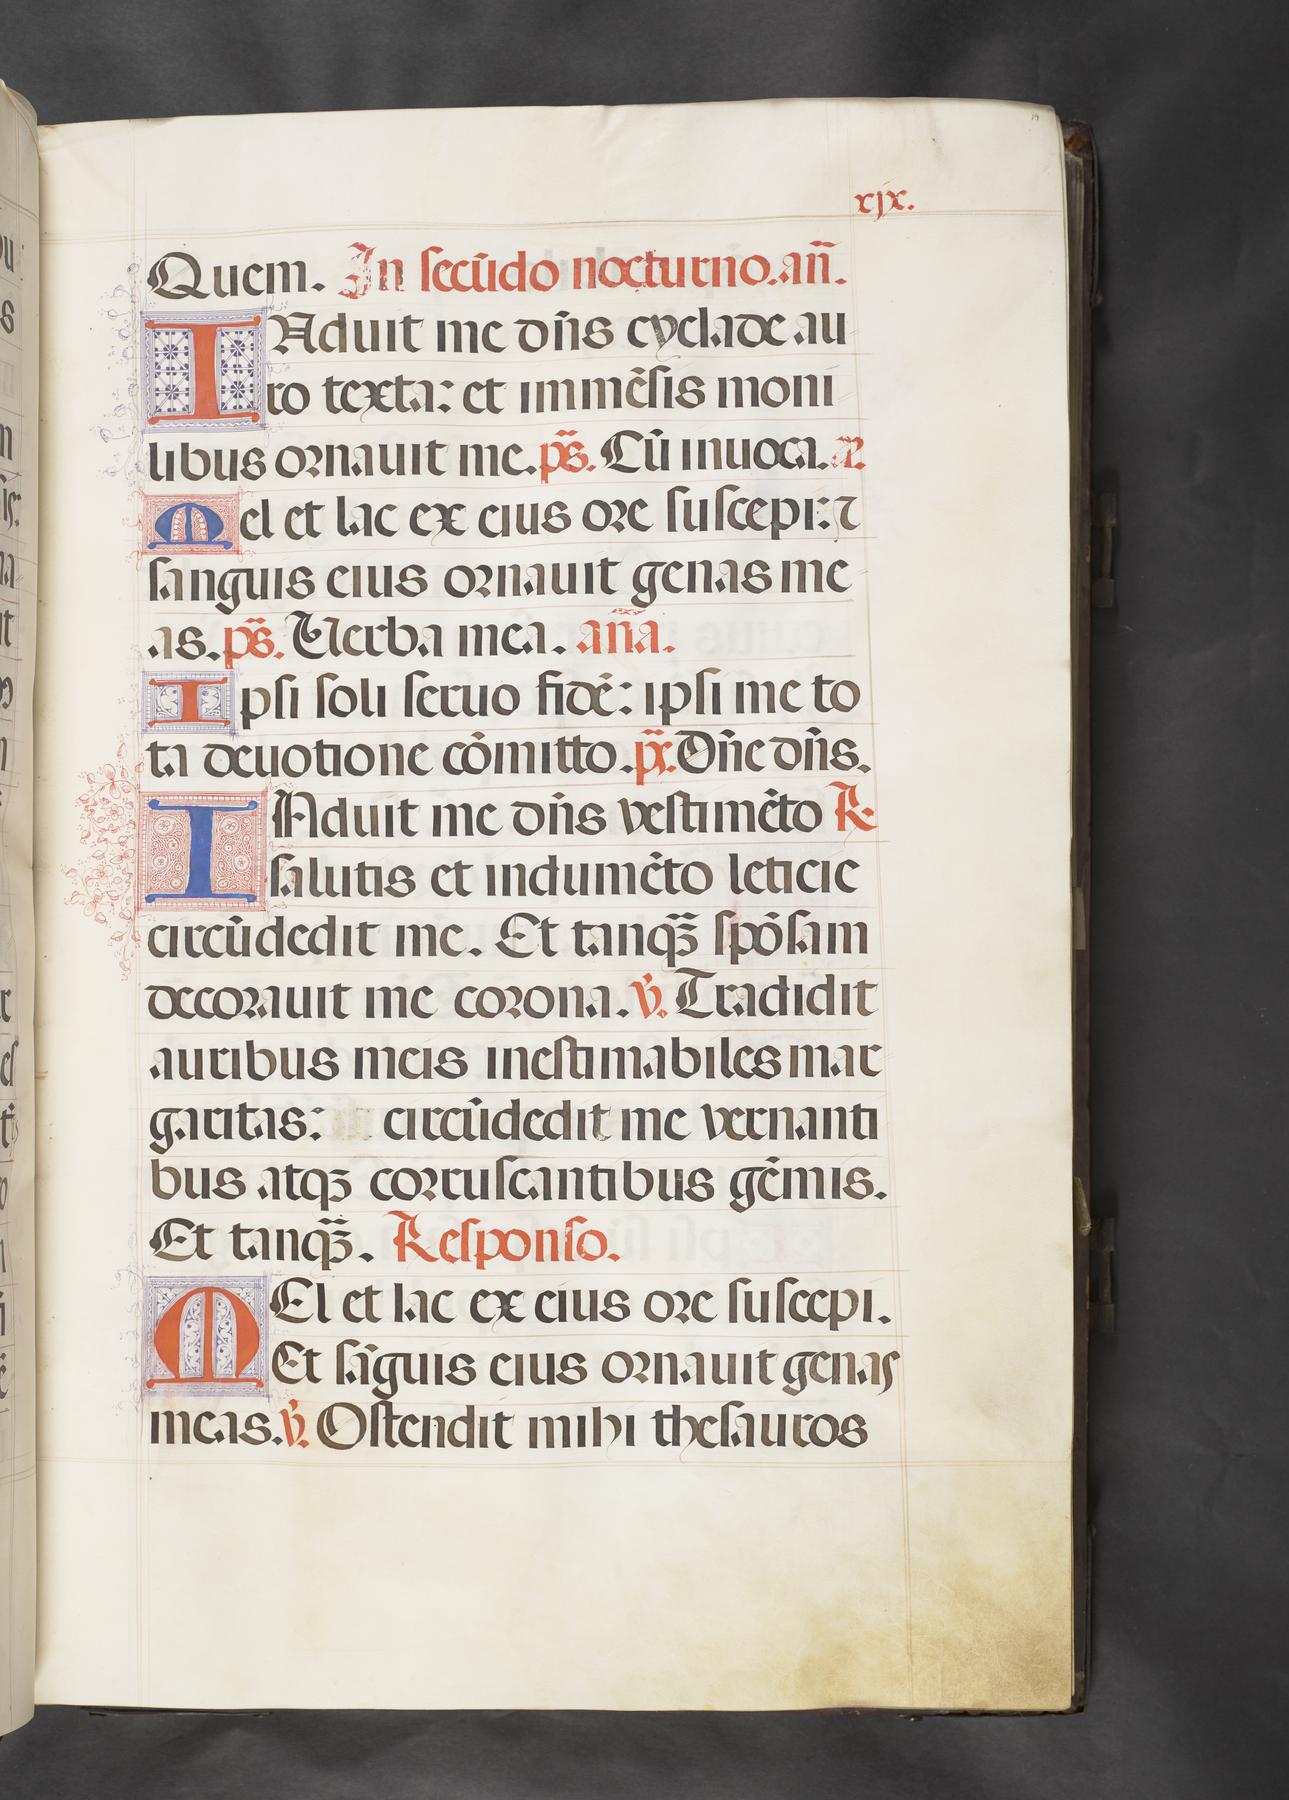 19
xjx.
Quem. In secūdo nocturno. añ.
INduit me dñs cyclade au
ro texta: et immēsis moni
libus ornauit me. ps. Cū inuoca. a.
Mel et lac ex eius ore suscepi: ⁊
sanguis eius ornauit genas me
as. ps. Uerba mea. aña.
Ipsi soli seruo fidē: ipsi me to
ta deuotione cōmitto. ps. Dñe dñs.
INduit me dñs vestimēto R.
salutis et indumēto leticie
circūdedit me. Et tanqȝ̄ spōsam
decorauit me corona. v̄. Tradidit
auribus meis inestimabiles mar
garitas: circūdedit me vernanti
bus atqȝ corruscantibus gēmis.
Et tanqȝ̄. Responso.
MEl et lac ex eius ore suscepi.
Et sāguis eius ornauit genas
meas. v̄. Ostendit mihi thesauros